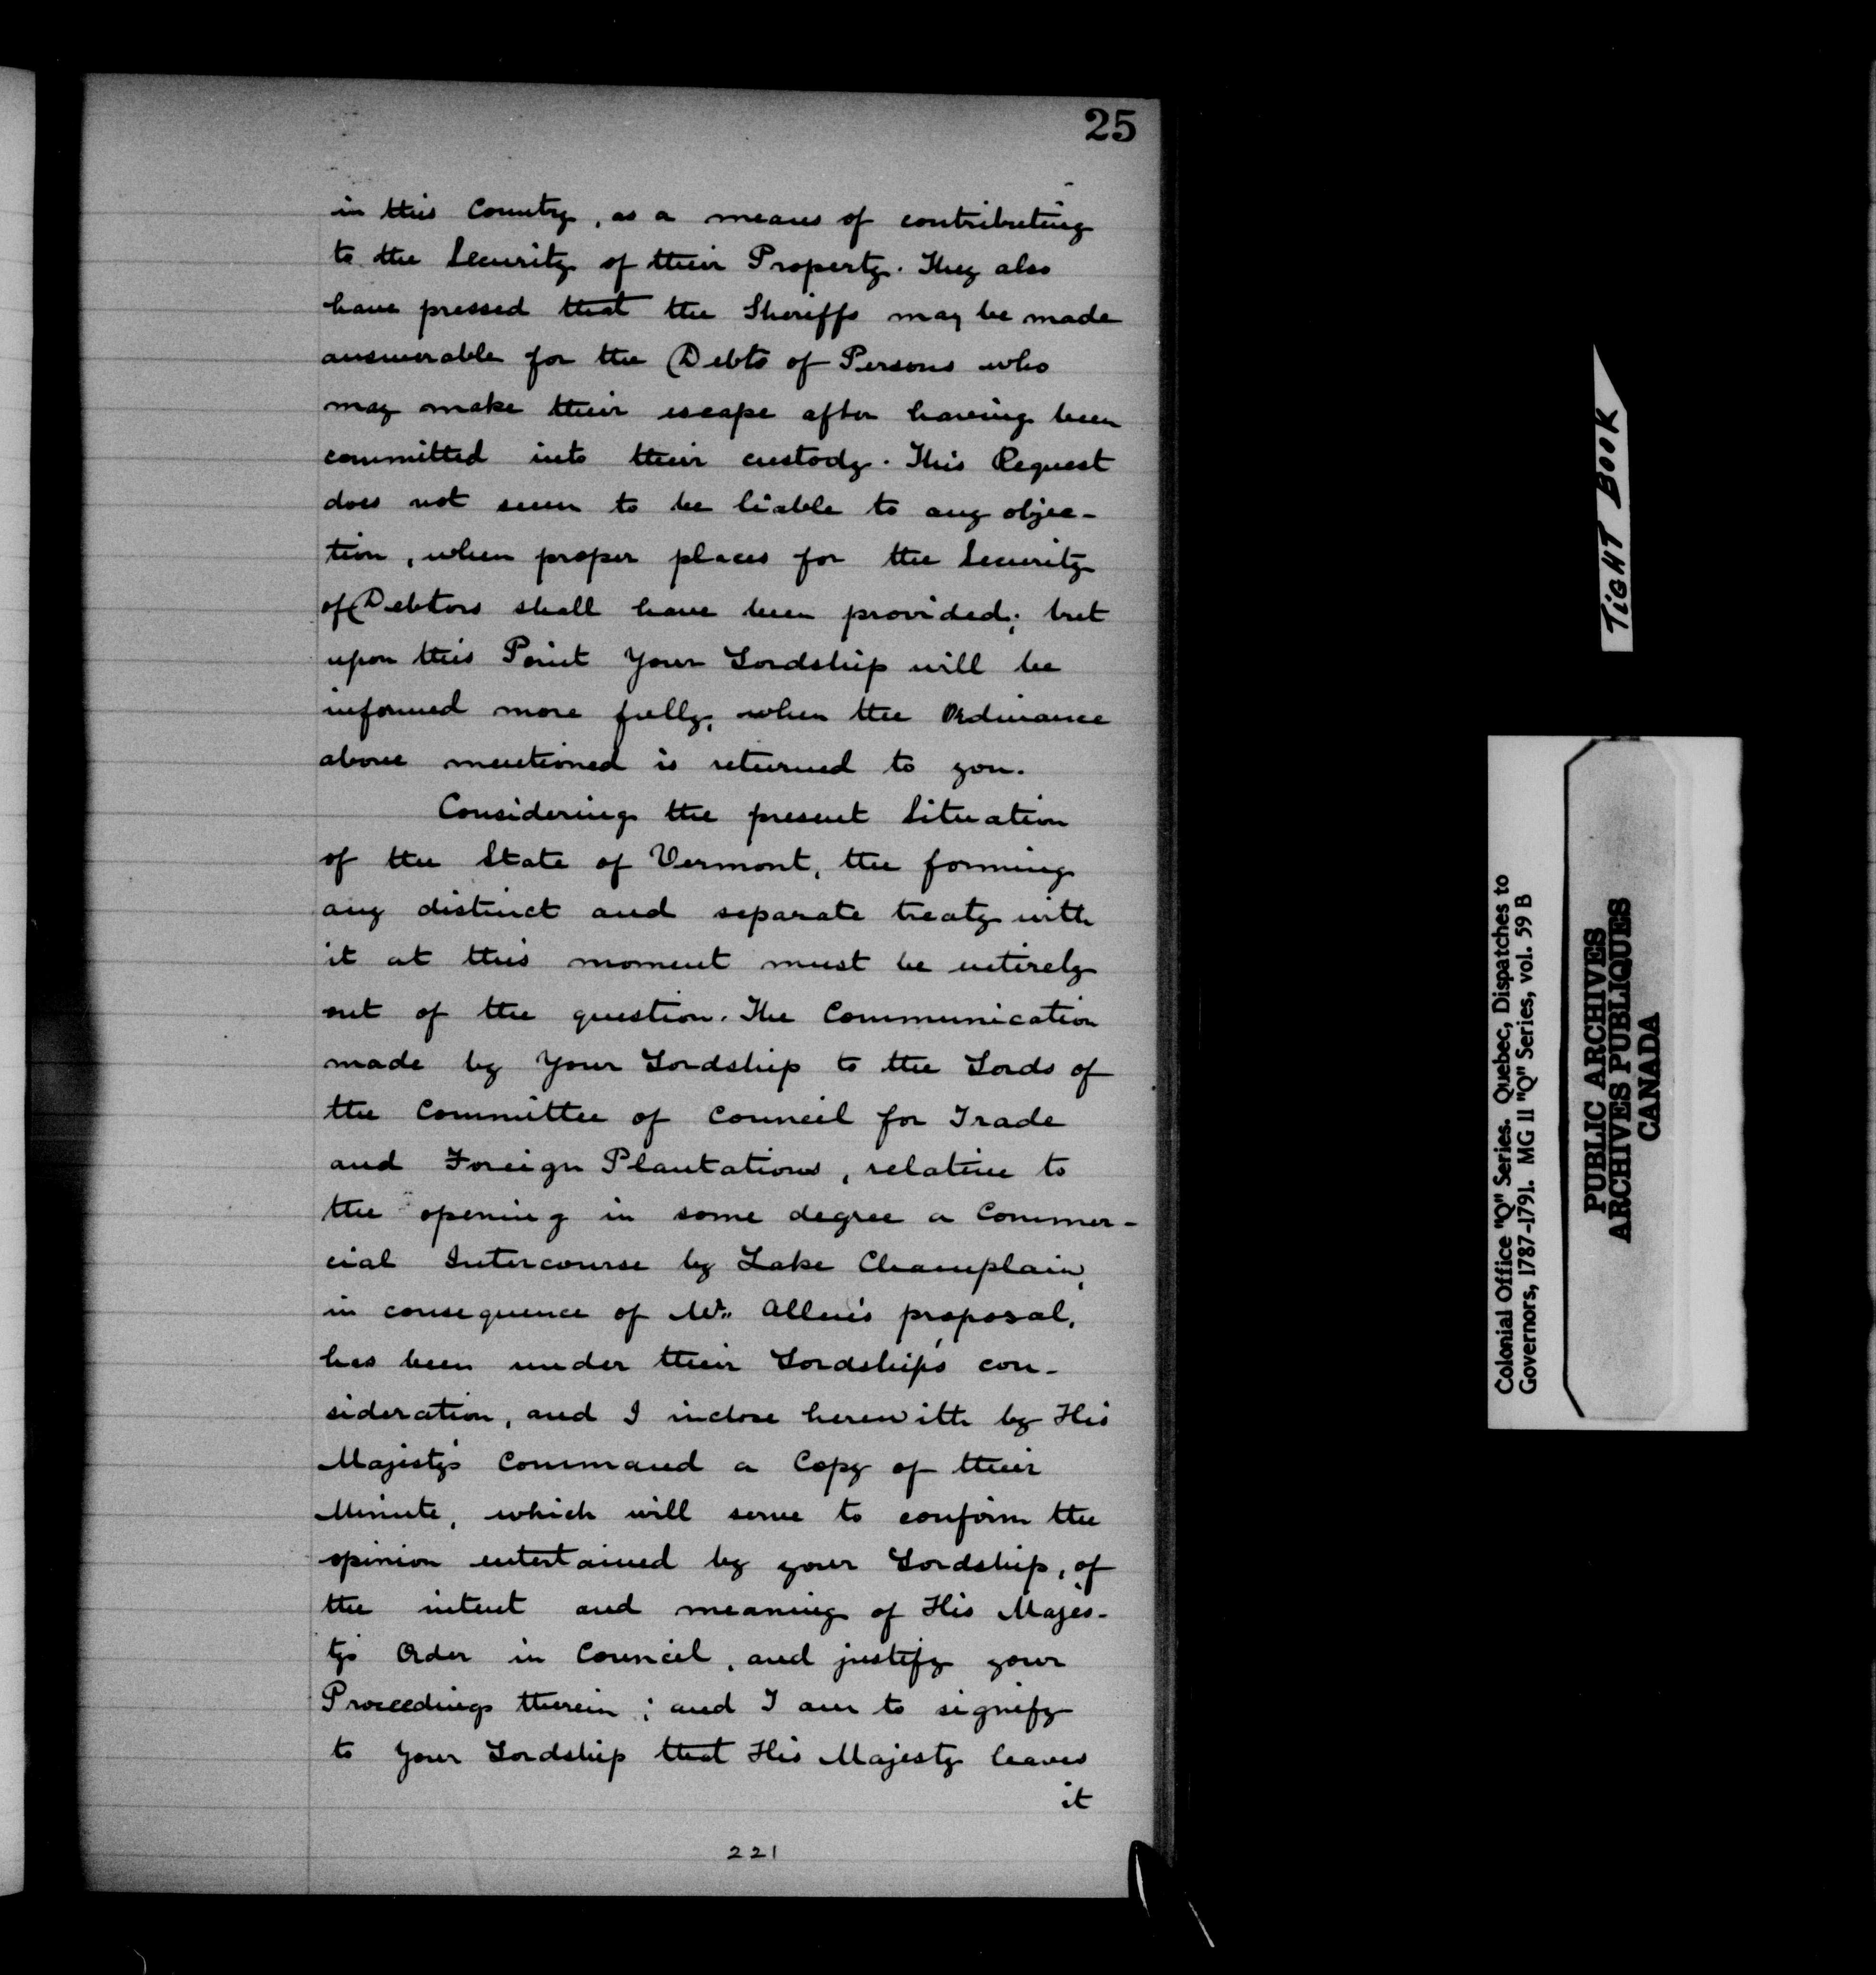 25
in this Country, as a means of contributing
to the Security of their Property. They also
have pressed that the Sheriffs may be made
answerable for the Debts of Persons who
may make their escape after having been
committed into their custody. This Request
does not seem to be liable to any objec-
tion, when proper places for the Security
of Debtors shall have been provided; but
upon this Point Your Lordship will be
informed more fully, when the Ordinance
above mentioned is returned to you.
Considering the present Situation
of the State of Vermont, the forming
any distinct and separate treaty with
it at this moment must be entirely
out of the question. The Communication
made by Your Lordship to the Lords of
the Committee of Council for Trade
and Foreign Plantations, relative to
the opening in some degree a Commer-
cial Intercourse by Lake Champlain,
in consequence of Mr. Allen's proposal,
has been under their Lordships' con-
sideration, and I inclose herewith by His
Majesty's Command a Copy of their
Minute, which will serve to confirm the
opinion entertained by your Lordship, of
the intent and meaning of His Majes-
ty's Order in Council, and justify your
Proceedings therein; and I am to signify
to Your Lordship that His Majesty leaves
it
221
TIGHT BOOK
Colonial Office "Q" Series. Quebec, Dispatches to
Governors, 1787-1791. MG 11 "Q" Series, vol. 59 B
PUBLIC ARCHIVES
ARCHIVES PUBLIQUES
CANADA